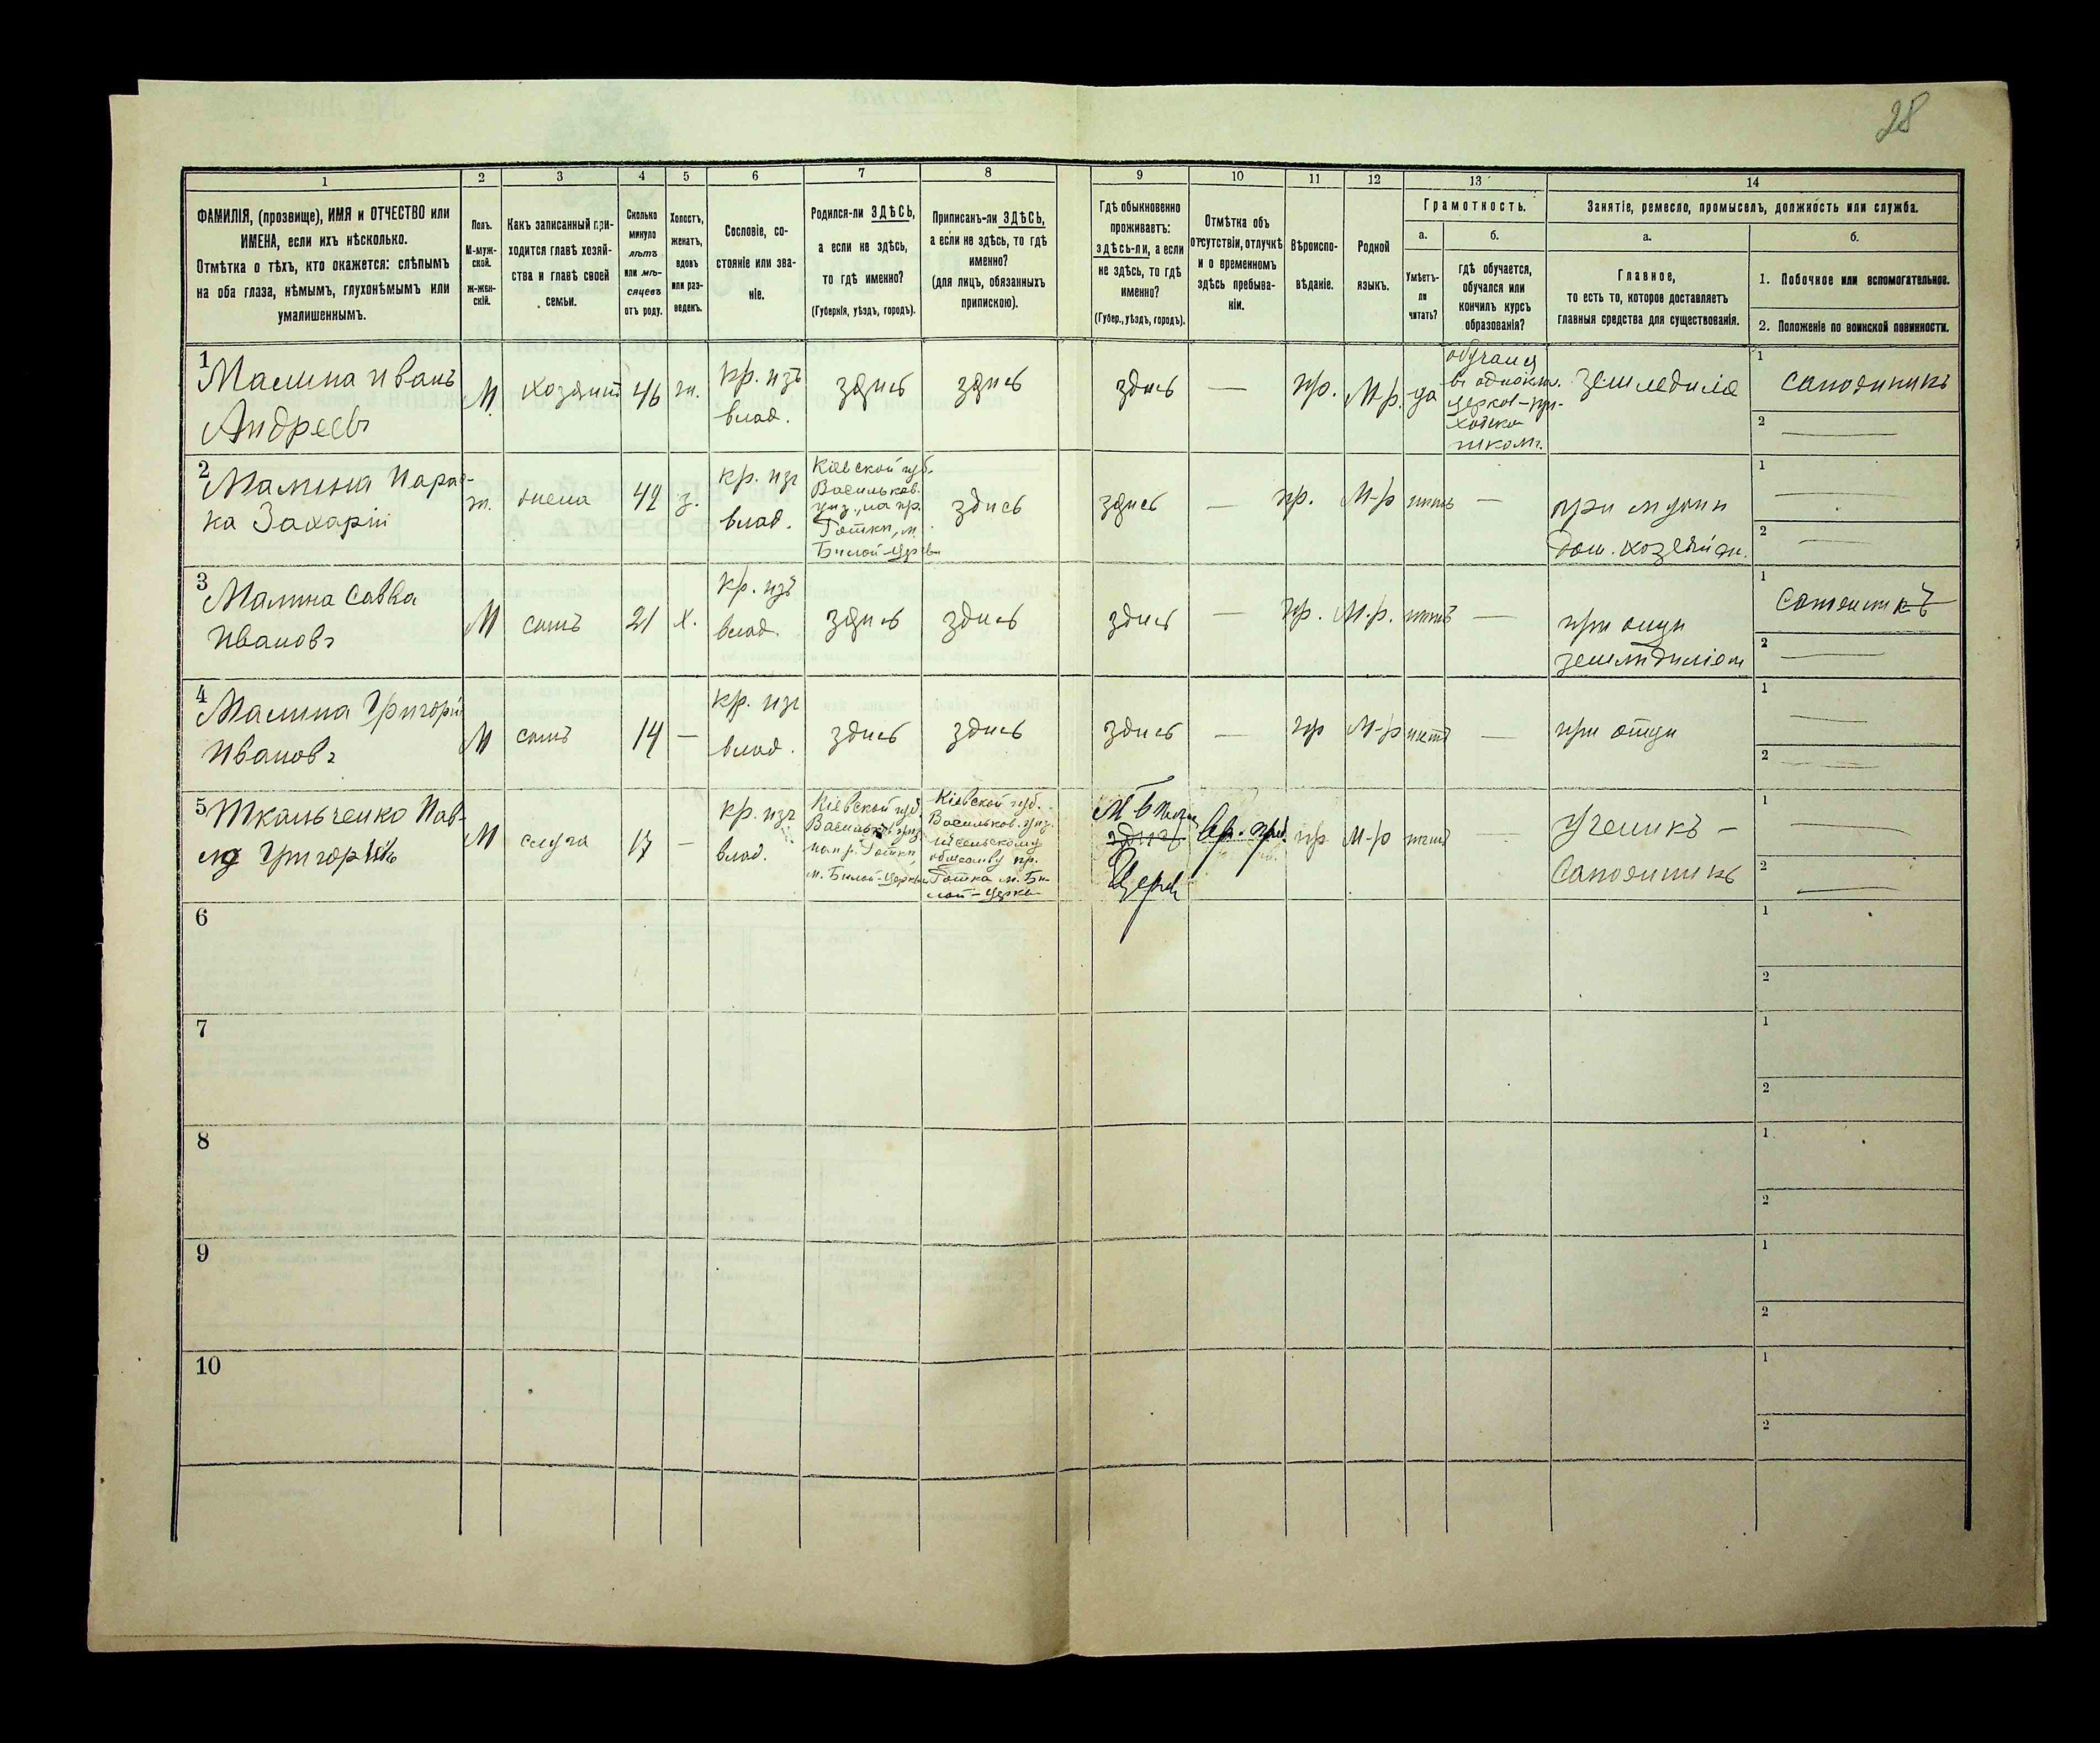 28
1 2 3 4 5 6 7 8 9 10 11 12 13 14
ФАМИЛІЯ, (прозвище), ИМЯ и ОТЧЕСТВО или
ИМЕНА, если ихъ нѣсколько.
Отмѣтка о тѣхъ, кто окажется: слѣпымъ
на оба глаза, нѣмымъ, глухонѣмымъ или
умалишеннымъ.
Полъ.
М-муж-
ской.
ж-жен-
скій.
Какъ записанный при-
ходится главѣ хозяй-
ства и главѣ своей
семьи.
Сколько
минуло
лѣтъ
или мѣ-
сяцевъ
отъ роду.
Холостъ,
женатъ,
вдовъ
или раз-
веденъ.
Сословіе, со-
стояніе или зва-
ніе.
Родился-ли ЗДѢСЬ,
а если не здѣсь,
то гдѣ именно?
(Губернія, уѣздъ, городъ).
Приписанъ-ли ЗДѢСЬ,
а если не здѣсь, то гдѣ
именно?
(для лицъ, обязанныхъ
припискою).
Гдѣ обыкновенно
проживаетъ:
здѣсь-ли, а если
не здѣсь, то гдѣ
именно?
(Губер., уѣздъ, городъ).
Отмѣтка объ
отсутствіи, отлучкѣ
и о временномъ
здѣсь пребыва-
ніи.
Вѣроиспо-
вѣданіе.
Родной
языкъ.
Грамотность.
а.
Умѣетъ-
ли
читать?
б.
гдѣ обучается,
обучался или
кончилъ курсъ
образованія?
Занятіе, ремесло, промыселъ, должность или служба.
а.
Главное,
то есть то, которое доставляетъ
главныя средства для существованія.
б.
1. Побочное или вспомогательное.
2. Положеніе по воинской повинности.
1
Малина Иванъ
Андреевъ
М
хозяинъ
46
ж.
кр. изъ
влад.
здись
здись
здись
—
пр.
М-р.
да
в однокл.
церков-при-
школ.
земледиліе
1 сапожникъ
2 —
2
Малина Парас-
ка Захарій
ж.
жена
42
з.
кр. изъ
влад.
Кіевской губ.
Васильков.
м.
Билой-Церкви
здись
здись
—
пр.
М-р
нитъ
—
при мужи
дом. хозяйн.
1 —
2 —
3
Малина Савка
Ивановъ
М
сынъ
21
х.
кр. изъ
влад.
здись
здись
здись
—
пр.
М-р.
нитъ
—
при отци
земледиліем
1 сапожникъ
2 —
4
Малина Григорій
Ивановъ
М
сынъ
14
—
кр. изъ
влад.
здись
здись
здись
—
пр
М-р
нитъ
—
при отци
1 —
2 —
5
Ткальченко Пав-
ло Григорій
М
слуга
17
—
кр. изъ
влад.
Кіевской губ.
Васильков. уиз.
м. Билой-Церкви
Кіевской губ.
Васильков. уиз.
сельскому
обществу пр.
м. Би-
лой-Церкви
М Билая
здись
Церк
Вр. преб.
пр
М-р
нитъ
—
Ученикъ —
Сапожникъ
1 —
2 —
6
1
2
7
1
2
8
1
2
9
1
2
10
1
2